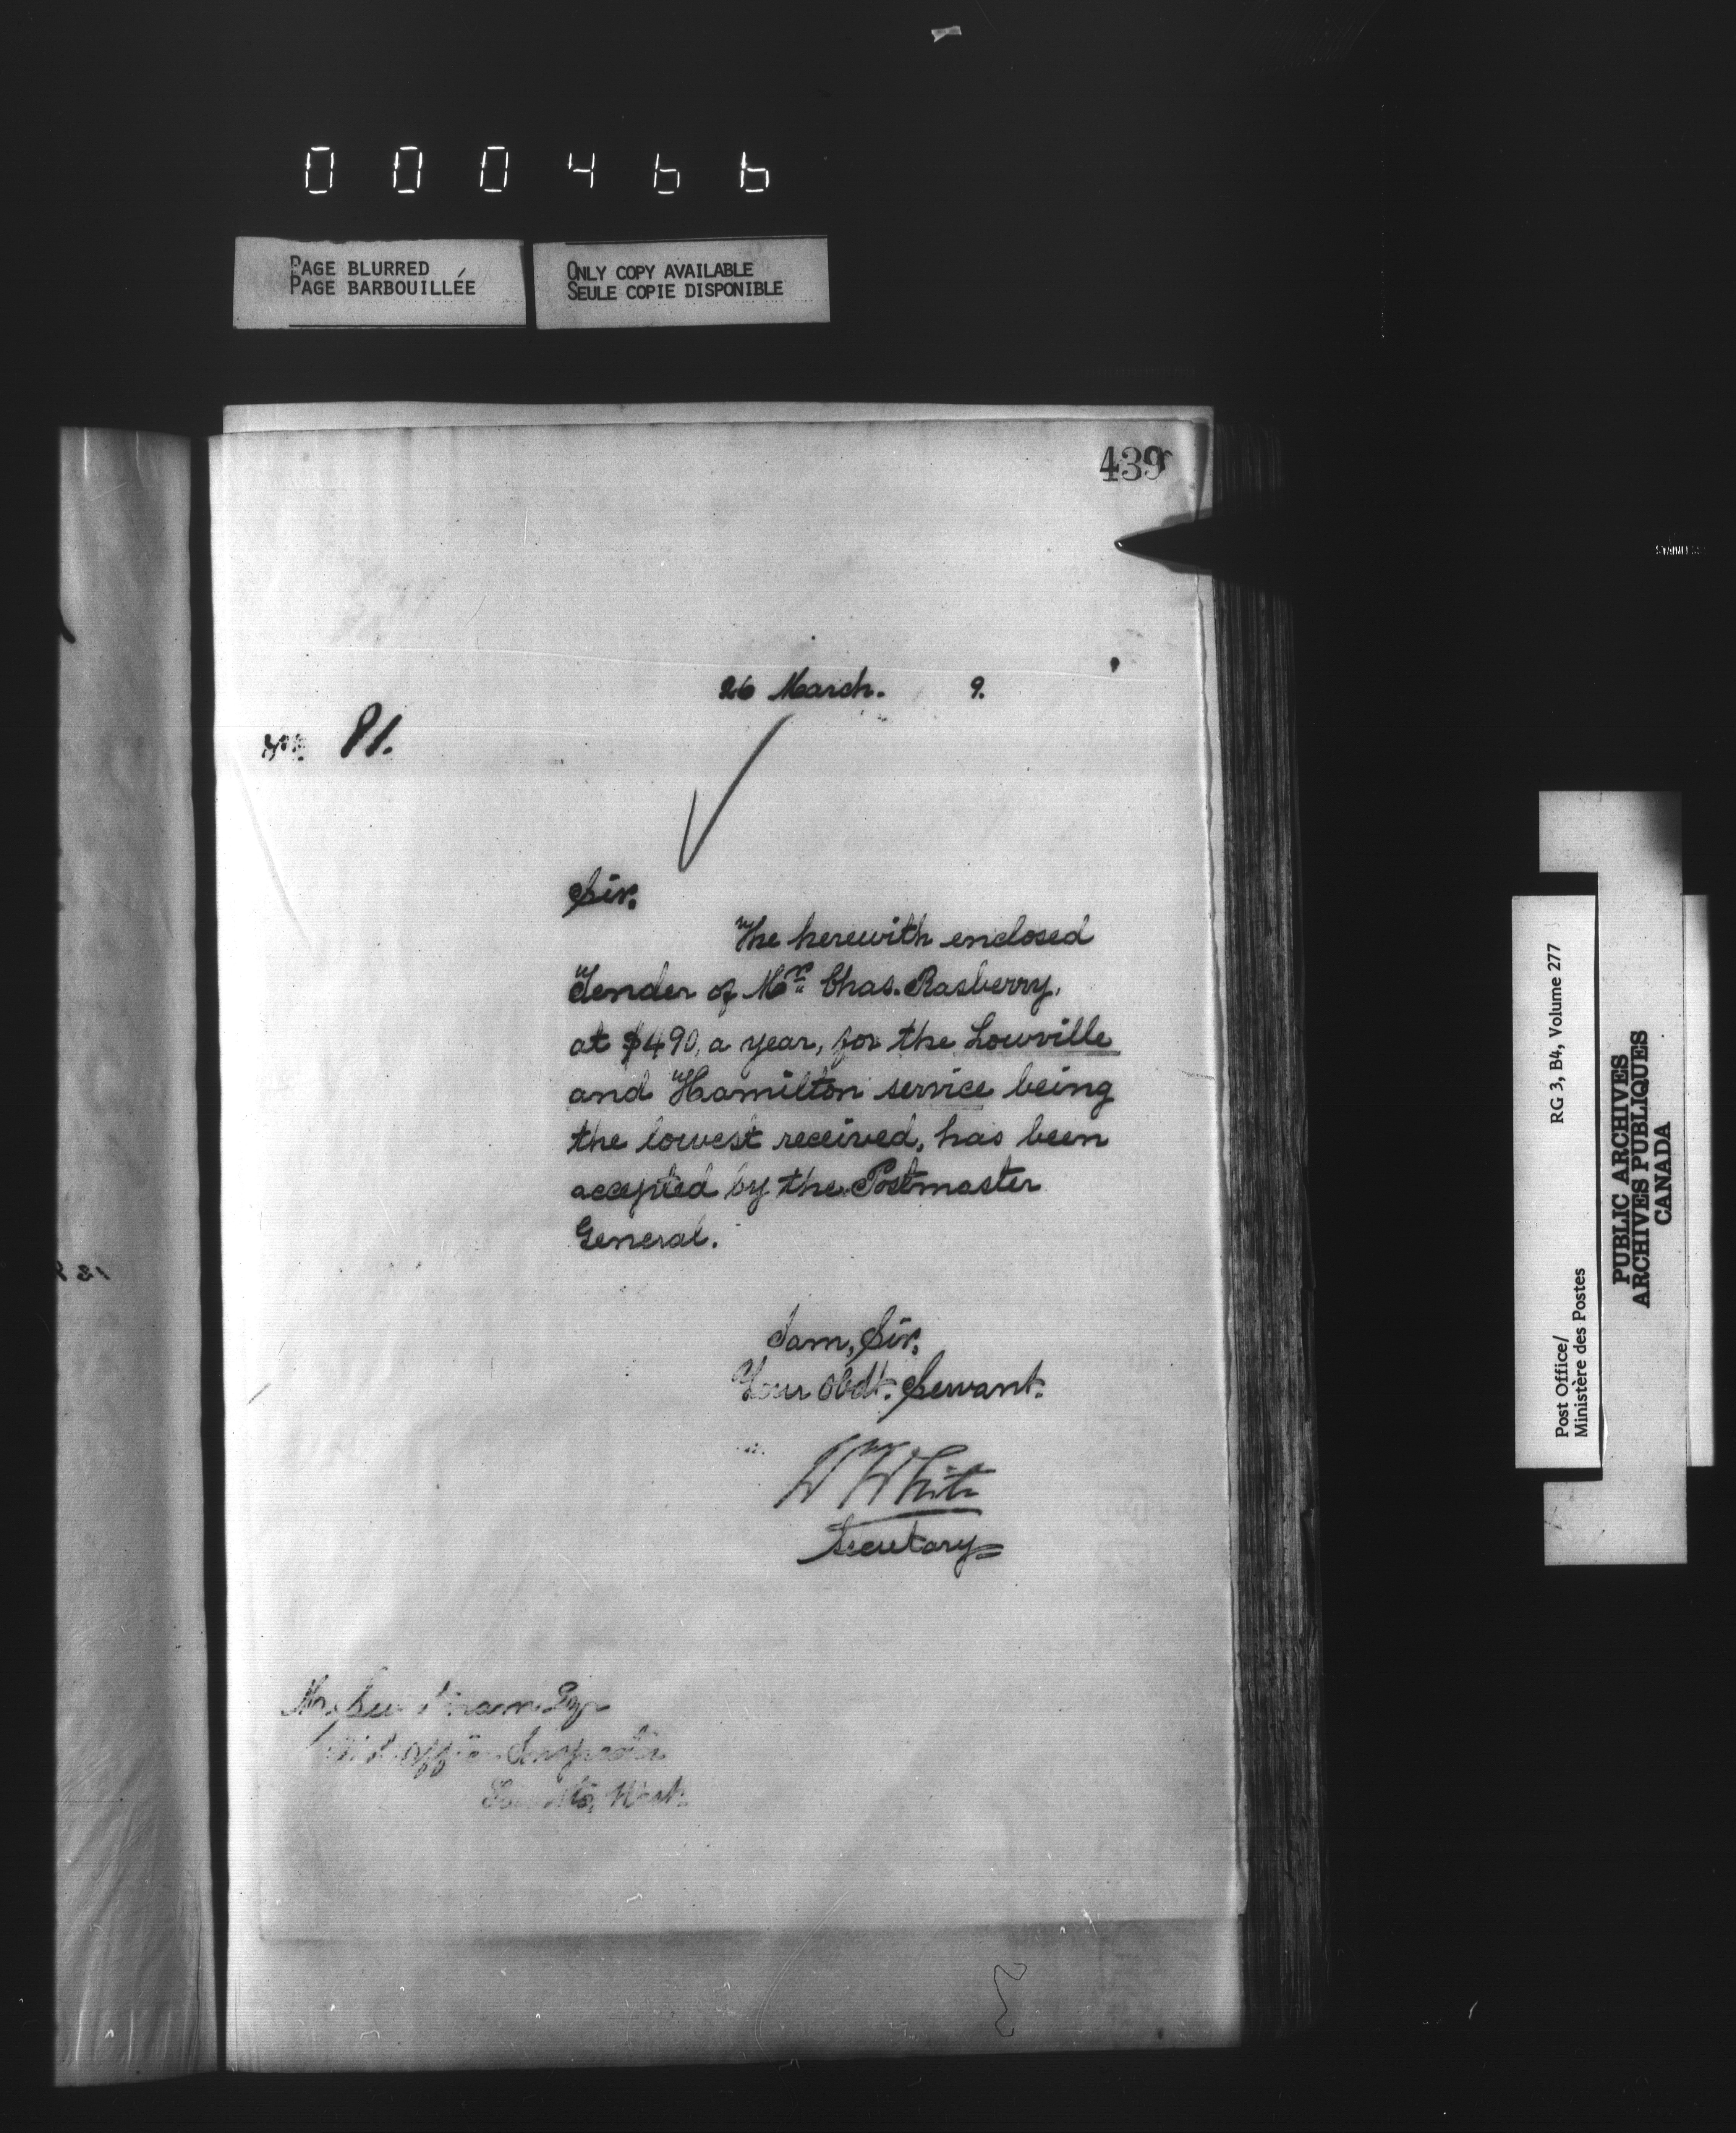 000466
PAGE BLURRED
PAGE BARBOUILLÉE
ONLY COPY AVAILABLE
SEULE COPIE DISPONIBLE
439
26 March. 9.
81.
Sir,
The herewith enclosed
Tender of Mr Chas. Rasberry,
at $490, a year, for the Lowville
and Hamilton service being
the lowest received, has been
accepted by the Postmaster
General.
I am, Sir,
Your Obdt. Servant.
W White
Secretary
Esqr
Office Inspector
RG 3, B4, Volume 277
Post Office/
Ministère des Postes
PUBLIC ARCHIVES
ARCHIVES PUBLIQUES
CANADA